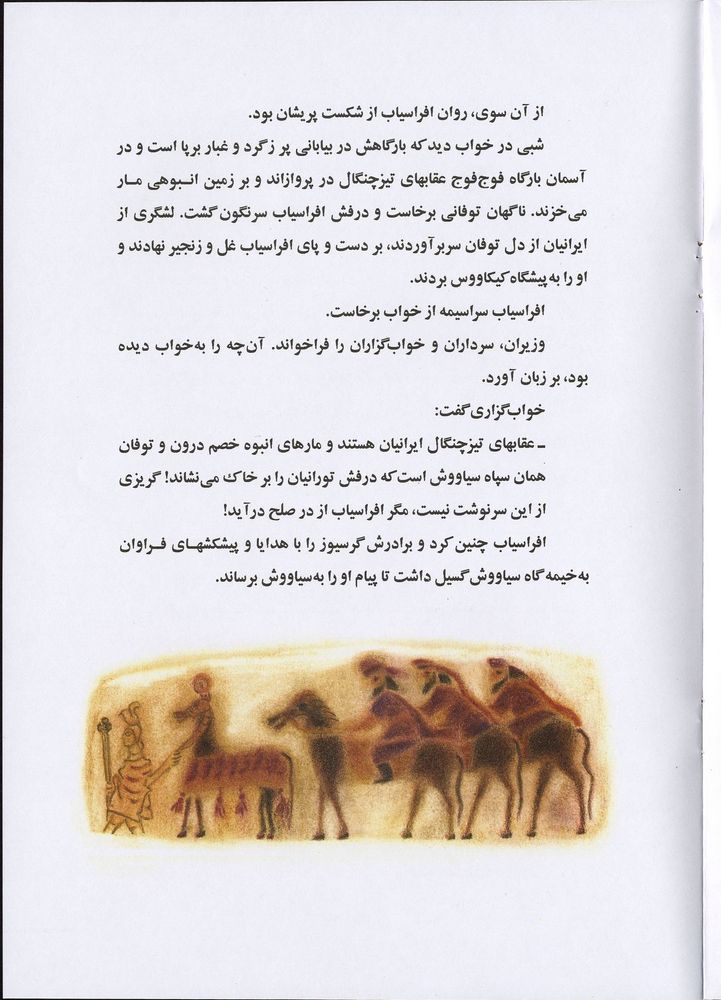 از آن سوی، روان افراسیاب از شکست پریشان بود.
شبی در خواب دید که بارگاهش در بیابانی پر زگرد و غبار برپا است و در
آسمان بارگاه فوج‌فوج عقابهای تیزچنگال در پروازاند و بر زمین انبوهی مار
می‌خزند. ناگهان توفانی برخاست و درفش افراسیاب سرنگون گشت. لشگری از
ایرانیان از دل توفان سربرآوردند، بر دست و پای افراسیاب غل و زنجیر نهادند و
او را به پیشگاه کیکاووس بردند.
افراسیاب سراسیمه از خواب برخاست.
وزیران، سرداران و خواب‌گزاران را فراخواند. آن‌چه را به‌خواب دیده
بود، بر زبان آورد.
خواب‌گزاری گفت:
ـ عقابهای تیزچنگال ایرانیان هستند و مارهای انبوه خصم درون و توفان
همان سپاه سیاووش است که درفش تورانیان را بر خاک می‌نشاند! گریزی
از این سرنوشت نیست، مگر افراسیاب از در صلح درآید!
افراسیاب چنین کرد و برادرش گرسیوز را با هدایا و پیشکشهای فراوان
به‌خیمه گاه سیاووش گسیل داشت تا پیام او را به‌سیاووش برساند.